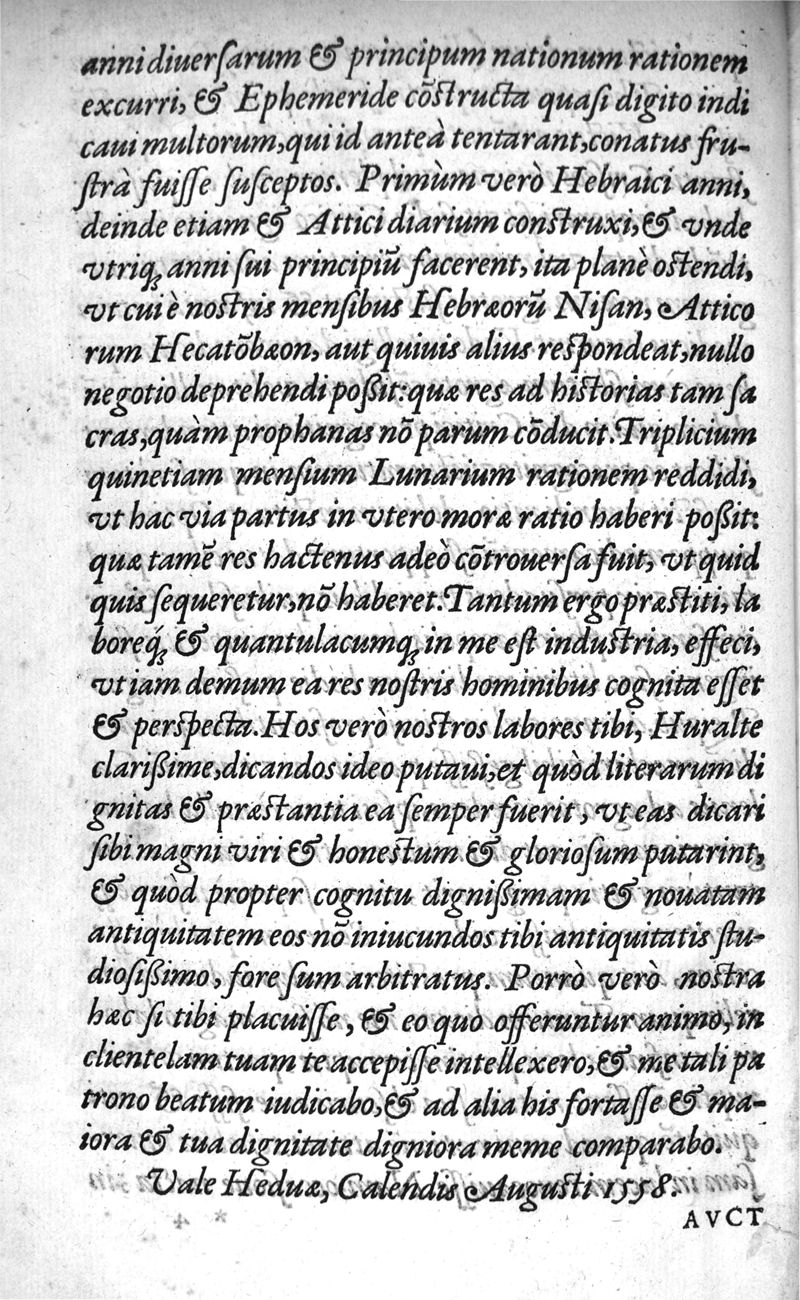 anni diuerſarum & principum nationum rationem
excurri, & Ephemeride cõſtructa quaſi digito indi
caui multorum, qui id anteà tentarant, conatus fru-
ſtrà fuiſſe ſuſceptos. Primùm verò Hebraici anni,
deinde etiam & Attici diarium conſtruxi, & vnde
vtriq; anni ſui principiũ facerent, ita planè oſtendi,
vt cui è noſtris menſibus Hebræorũ Niſan, Attico
rum Hecatõbæon, aut quiuis alius reſpondeat, nullo
negotio deprehendi poßit: quæ res ad hiſtorias tam ſa
cras, quàm prophanas nõ parum cõducit. Triplicium
quinetiam menſium Lunarium rationem reddidi,
vt hac via partus in vtero moræ ratio haberi poßit:
quæ tamẽ res hactenus adeò cõtrouerſa fuit, vt quid
quis ſequeretur, nõ haberet. Tantum ergo præſtiti, la
boreq́; & quantulacumq; in me eſt induſtria, effeci,
vt iam demum ea res noſtris hominibus cognita eſſet
& perſpecta. Hos verò noſtros labores tibi, Huralte
clarißime, dicandos ideo putaui, et quòd literarum di
gnitas & præſtantia ea ſemper fuerit, vt eas dicari
ſibi magni viri & honeſtum & glorioſum putarint,
& quòd propter cognitu dignißimam & nouatam
antiquitatem eos nõ iniucundos tibi antiquitatis ſtu-
dioſißimo, fore ſum arbitratus. Porrò verò noſtra
hæc ſi tibi placuiſſe, & eo quo offeruntur animo, in
clientelam tuam te accepiſſe intellexero, & me tali pa
trono beatum iudicabo, & ad alia his fortaſſe & ma-
iora & tua dignitate digniora meme comparabo.
Vale Heduæ, Calendis Auguſti 1558.
AVCT